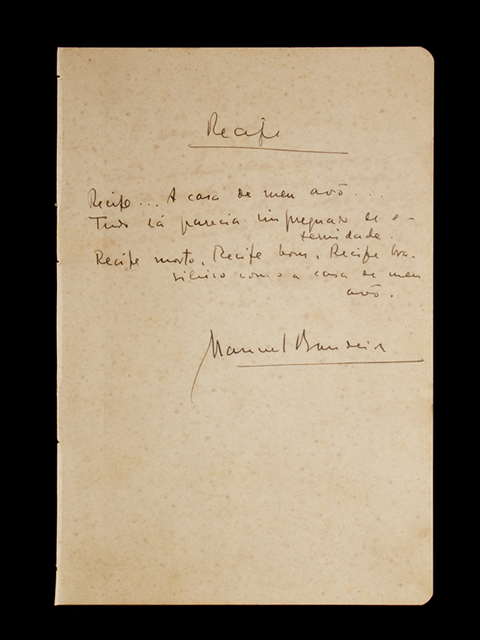 Recife
Recife... A casa de meu avô...
Tudo lá parecia impregnado de e-
ternidade.
Recife morto, Recife bom, Recife bra-
sileiro como a casa de meu
avô.
Manuel Bandeira